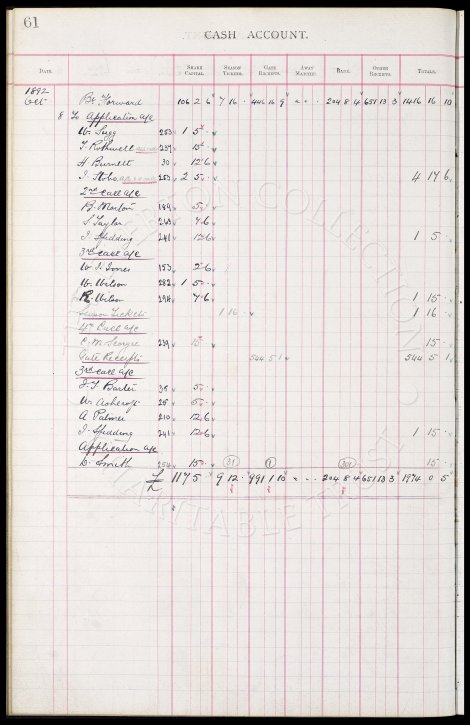 61
CASH ACCOUNT.
DATE. SHARE CAPITAL. SEASON TICKETS. GATE RECEIPTS. AWAY MATCHES. BANK. OTHER RECEIPTS. TOTALS.
1892
Oct Bt Forward 106 2 6 7 16 - 446 16 9 - - - 204 8 4 651 13 3 1416 16 10
8 To Application a/c
W. Sugg 253 1 5
T. Rothwell 237 15
H Burnett 30 12 6
J. 253 2 5 4 17 6
2nd call a/c
B. Morton 189 5
S Taylor 7 6
J. Spedding 241 12 6 1 5
3rd call a/c
W. J. Jones 153 2 6
W. Wilson 282 1 5
R. Wilson 298 7 6 1 15
Season Tickets 1 16 1 16
4th Call a/c
C. W. George 239 15 15
Gate Receipts 544 5 1 544 5 1
3rd call a/c
J. T Baxter 35 5
W. Ashcroft 25 5
A Palmer 210 12 6
J. Spedding 241 12 6 1 15
Application a/c
D. Smith 254 15 15
£ 117 5 9 12 991 1 10 - - - 204 8 4 651 13 3 1974 0 5